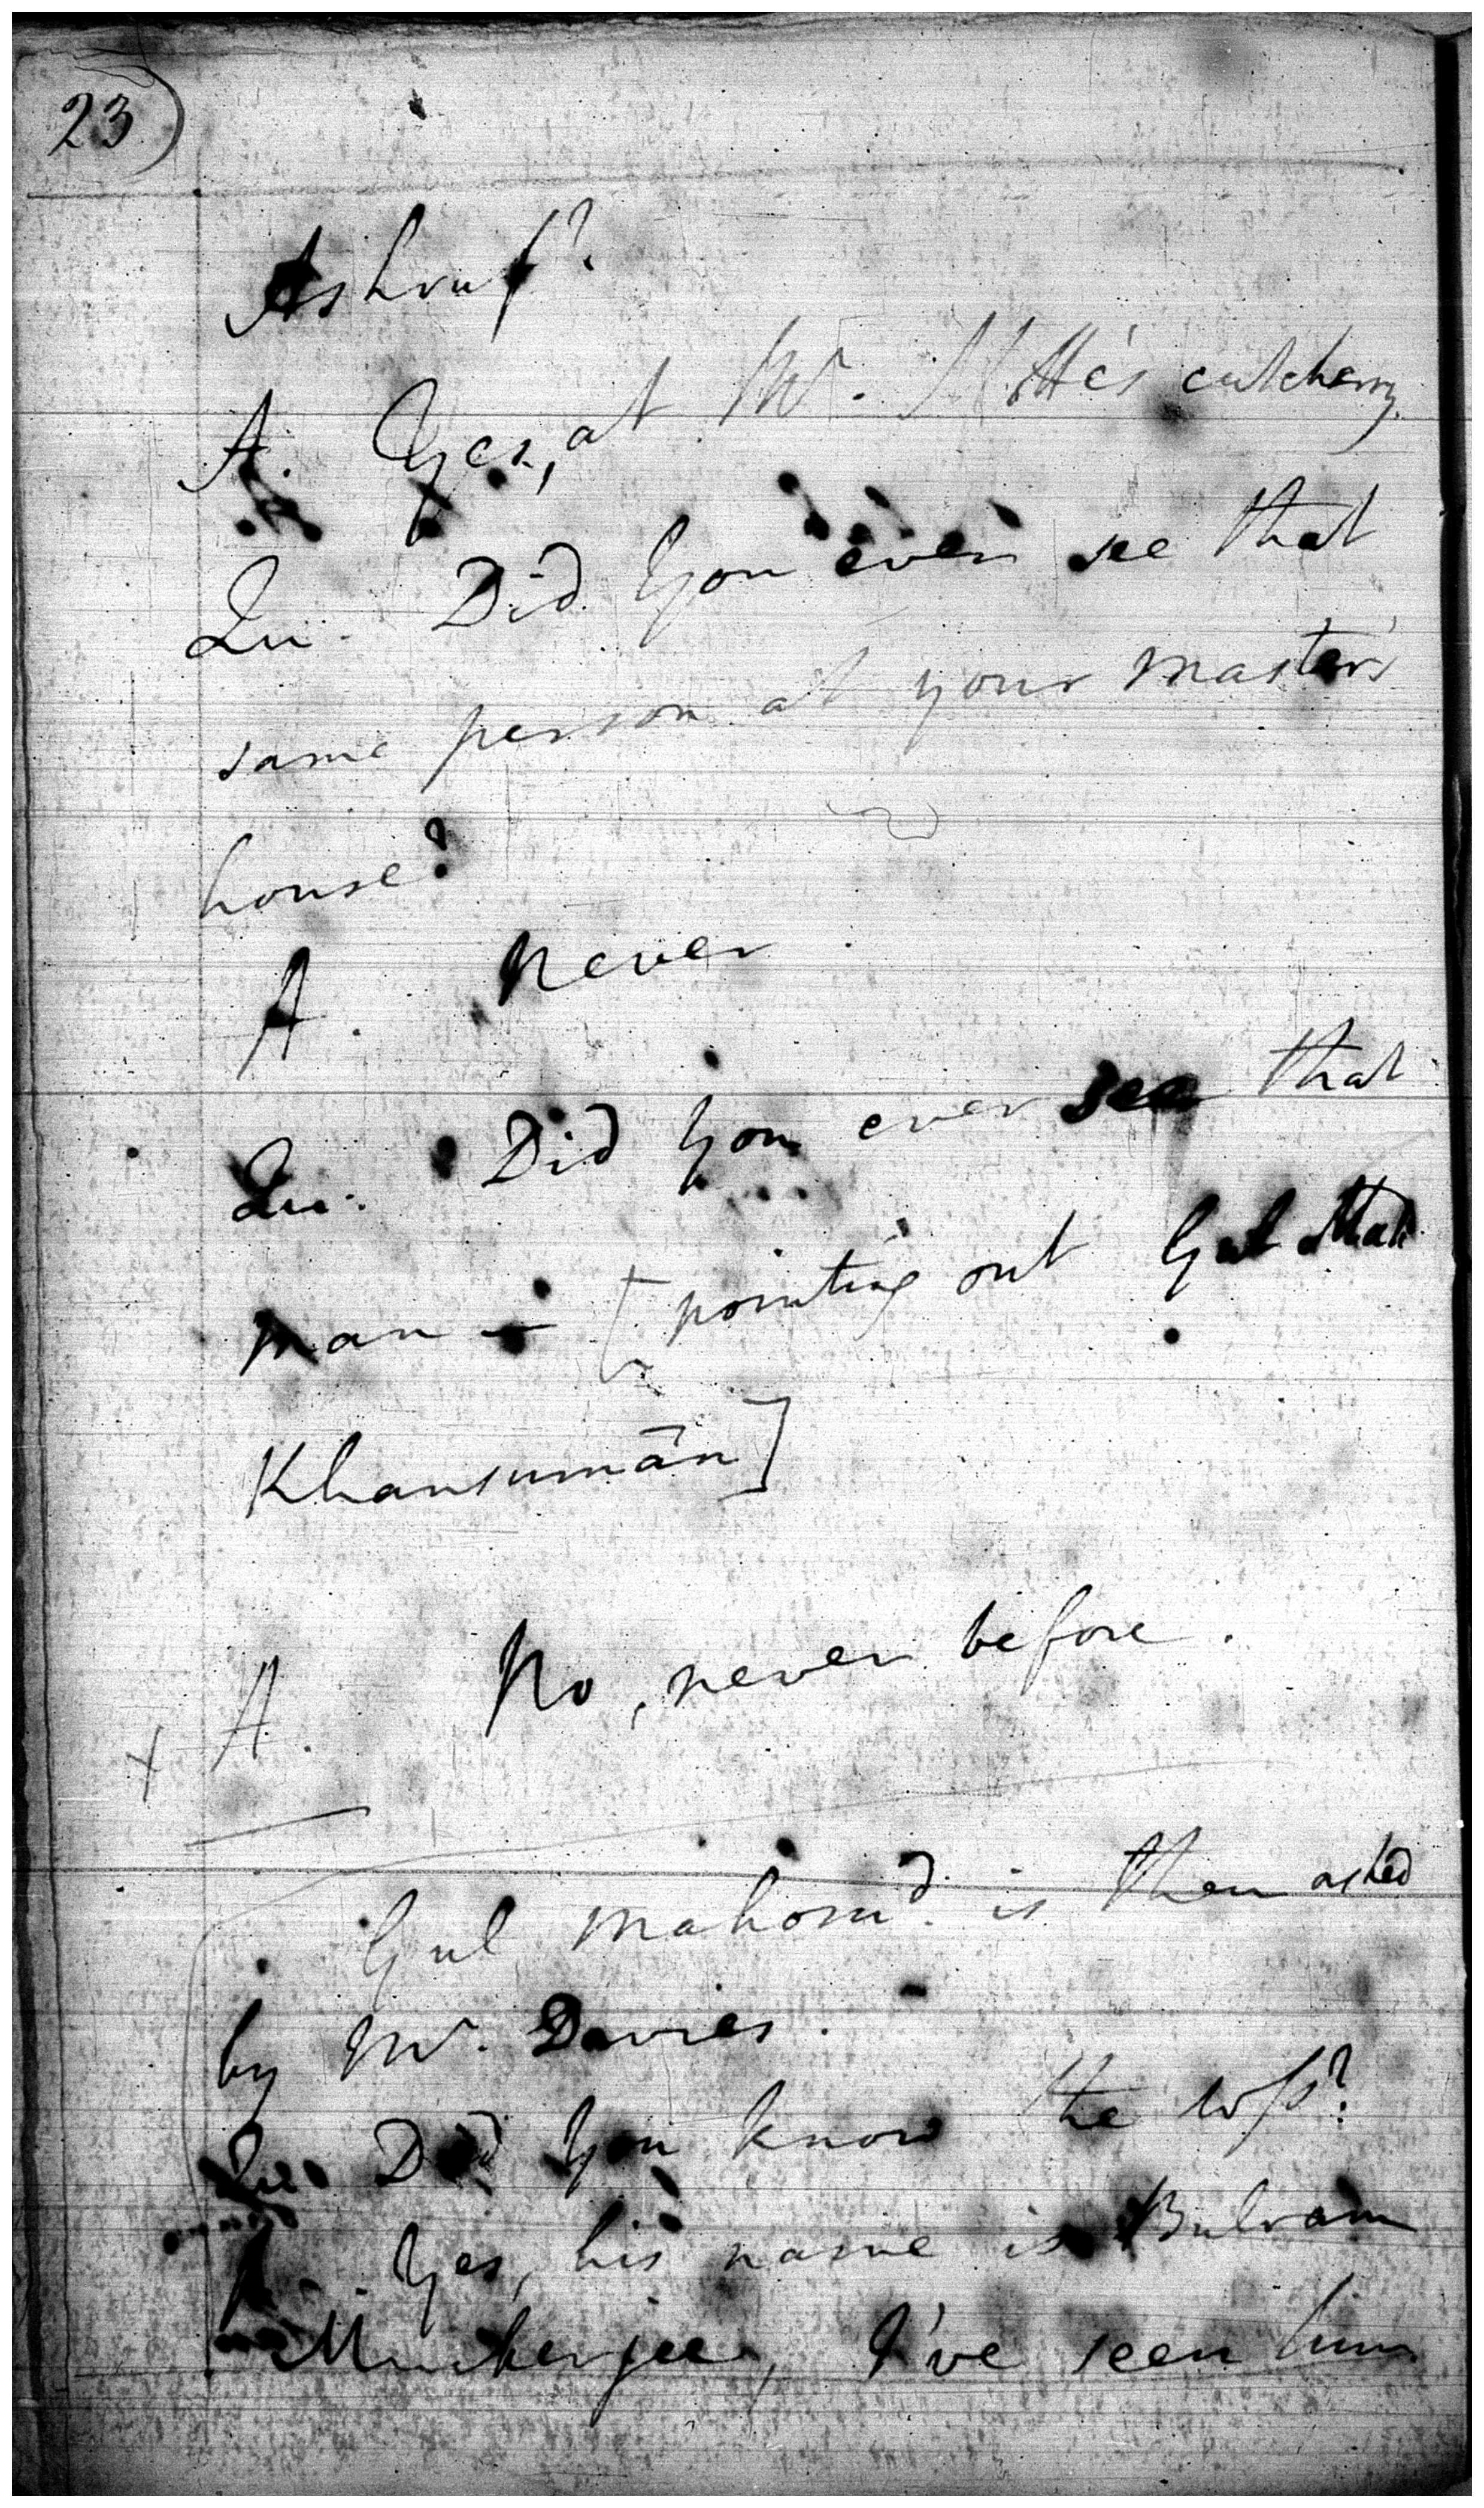 23)
Ashruf?
A. Yes, at Mr. cutcherry
Qu. Did you ever see that
same person at your master's
house?
A. Never
Qu. Did you ever see that
man — [pointing out Gul
Khansumân]
+ A. No, never before.
Gul Mahomd. is then asked
by Mr. Davies.
Qu. Did you know the wss?
A. Yes, his name is Bulram
Muckerjee, I've seen him